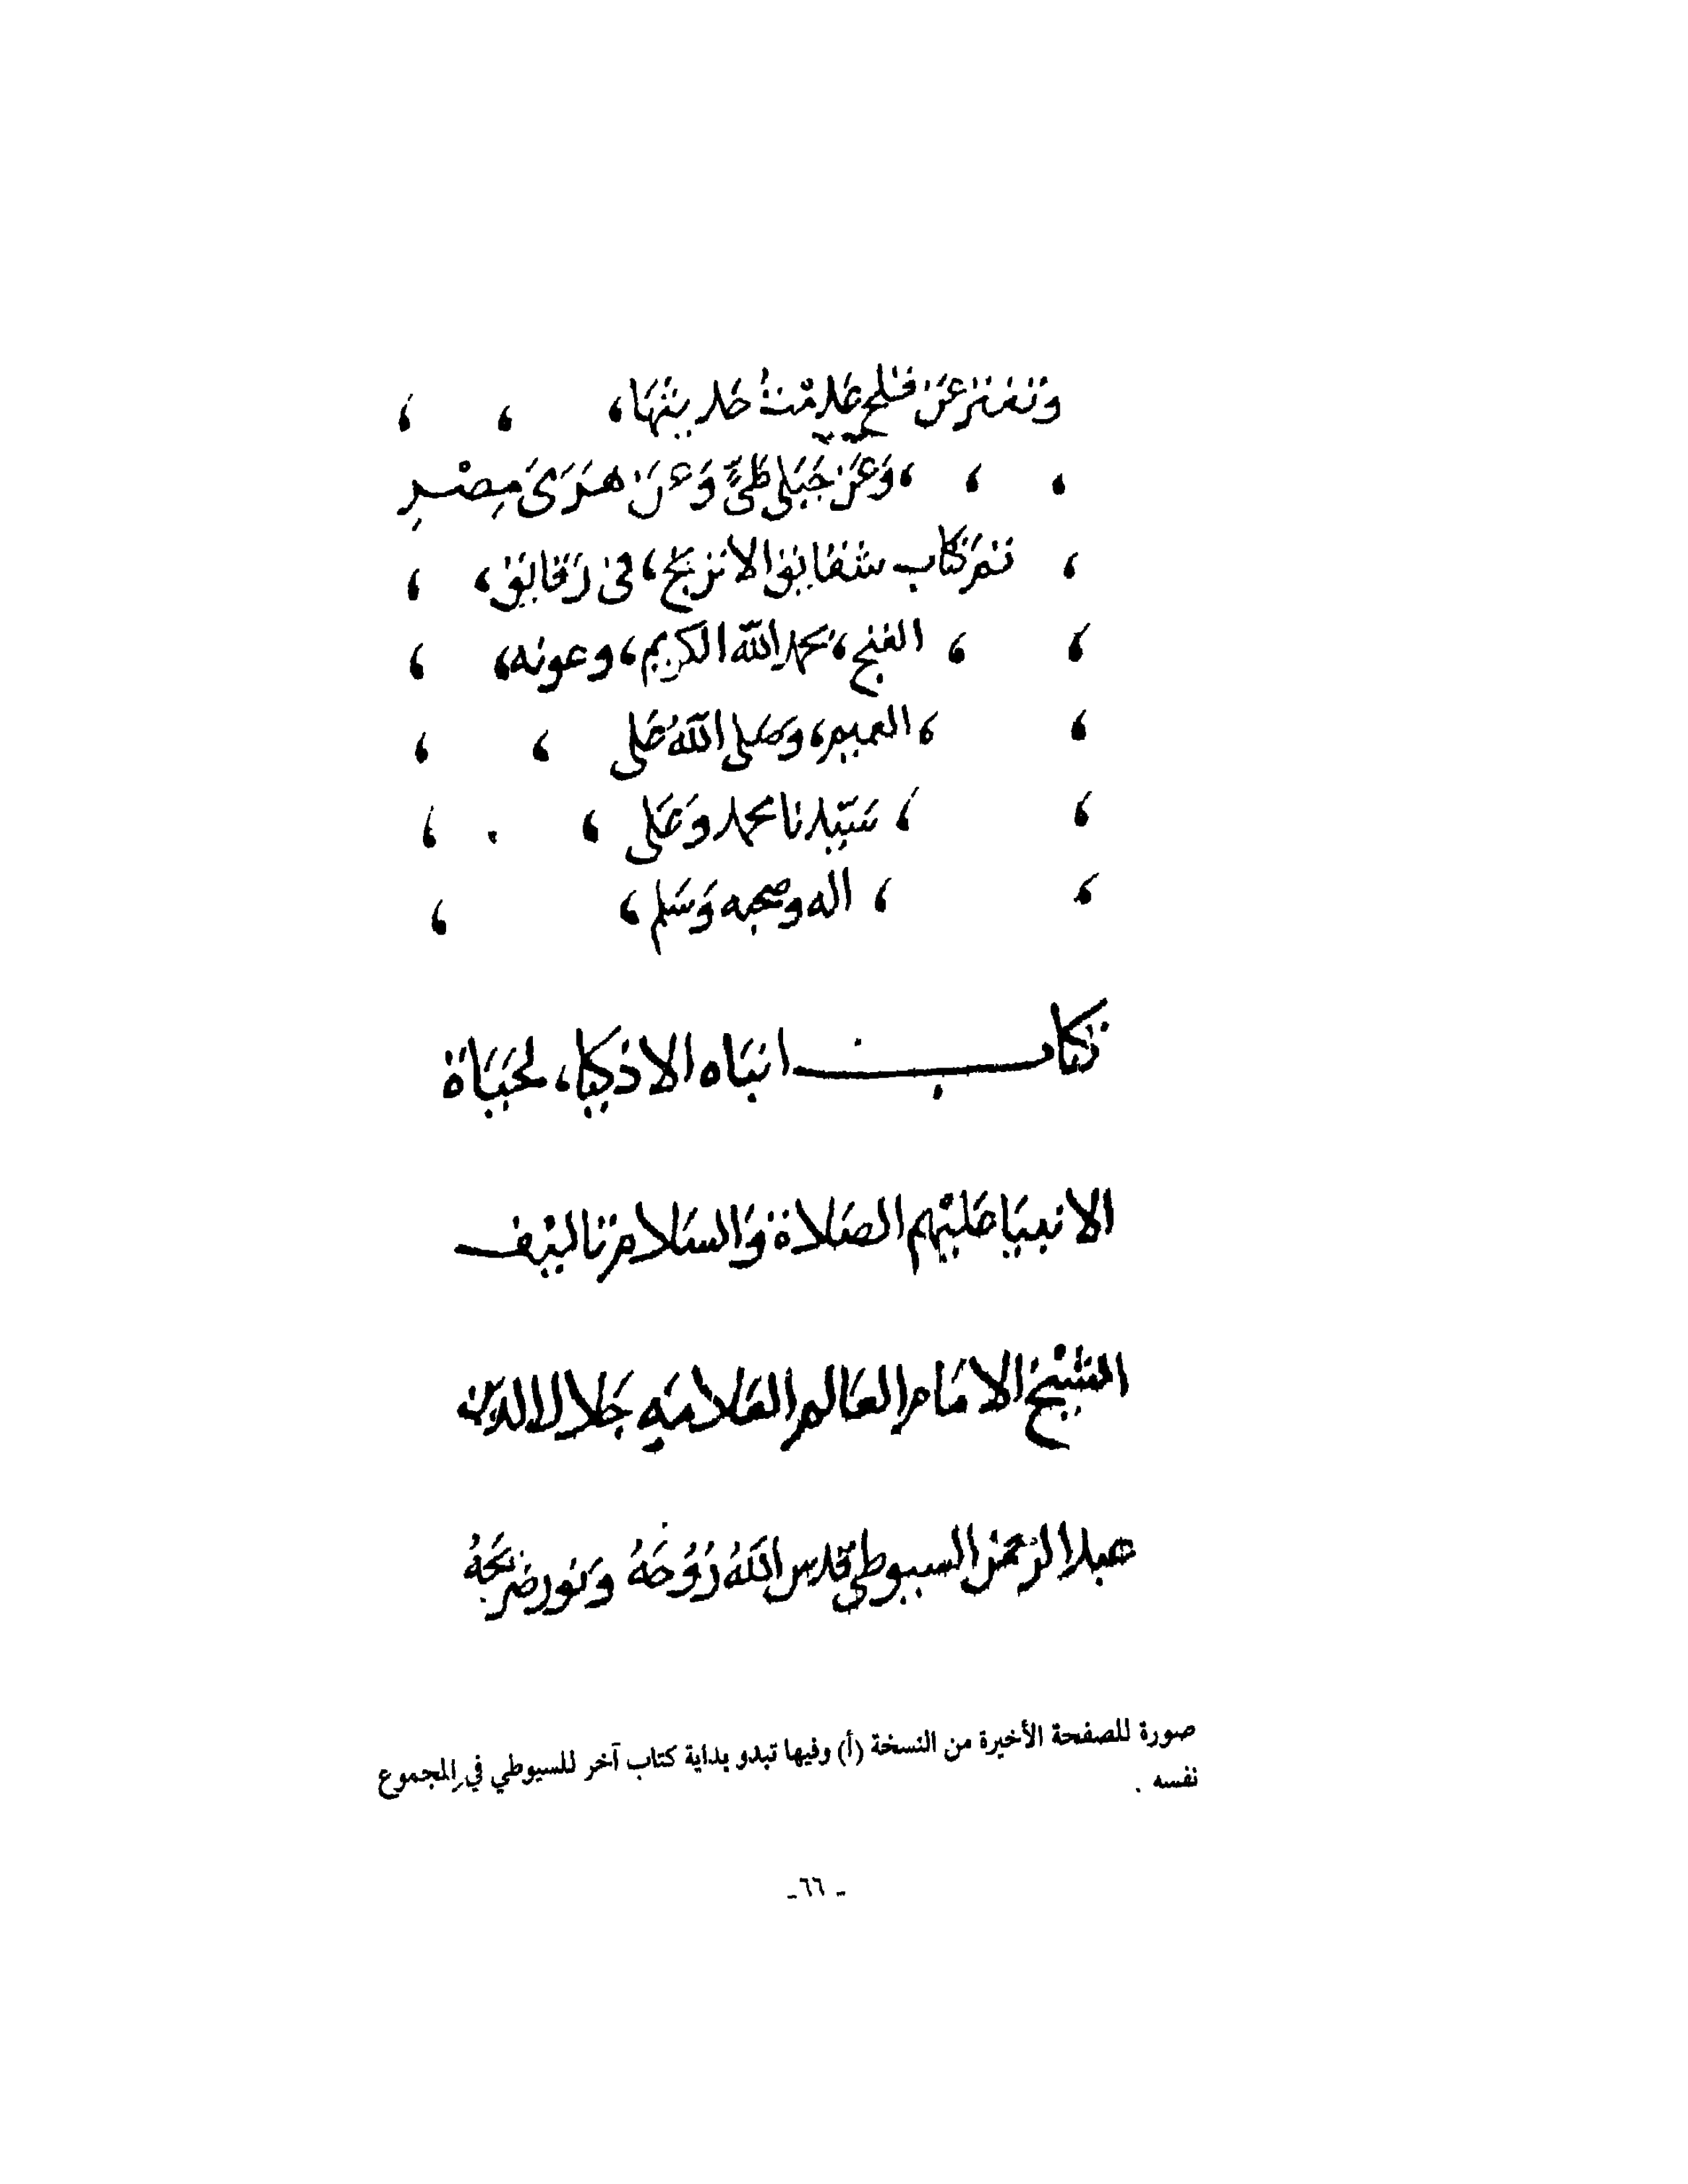 وَتفتر عَن فلج علِمْتُ حَديثهَا،
، وَعَن جَبَلي طَيٍّ وَعَن هَرَمَىَ مِصْرِ
تم كتاب شقايق الاترنج، في رَقايق،
، الغنج، بحمد الله الكريم، وعونه،
، العميم، وَصَلى اللهُ عَلى
، سَيّدنا محمد وَعَلى ،
، اله وصحبه وَسَلم ،
كتاب انبَاه الاذكيا، لحَيَاة
الانبيَا عَليْهم الصَلاة وَالسَلام تاليْف
الشيْخ الامَام العَالم العَلامَه جَلال الدين
عبد الرَحمن السيوطي قدس اللهُ رُوُحَهُ وَنور ضريحَهُ
صورة للصفحة الأخيرة من النسخة (أ) وفيها تبدو بداية كتاب آخر للسيوطي في المجموع
نفسه .
ـ ٦٦ ـ